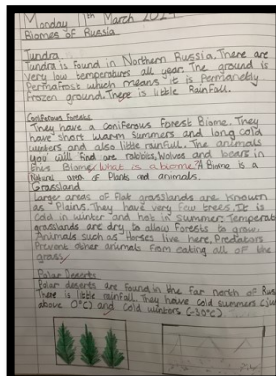 Monday 11th March 202
Biomes of Russia.
Tundra
Tundra is found in Northern Russia. There are
very low temperatures all year. The ground is
Permafrost which means it is Permanetly
frozen ground. There is little Rainfall.
Coniferous Forests
They have a Coniferous Forest Biome. They
have short warm Summers and long cold
winters and also little rainfall. The animals
you will find are rabbits, Wolves and bears in
this Biome. What is a biome? A Biome is a
Natural area of Plants and animals.
Grassland
Larger areas of flat grasslands are known
as Plains. They have very few trees. It is
cold in winter and hot in summer. Temperate
grasslands are dry to allow Forests to grow.
Animals such as Horses live here, Predators
Prevent other animals from eating all of the
grass/
Polar Deserts
Polar deserts are found in the far north of Russ
There is little rainfall. They have cold summers (jus
above 0°C) and Cold winters (-30°C)